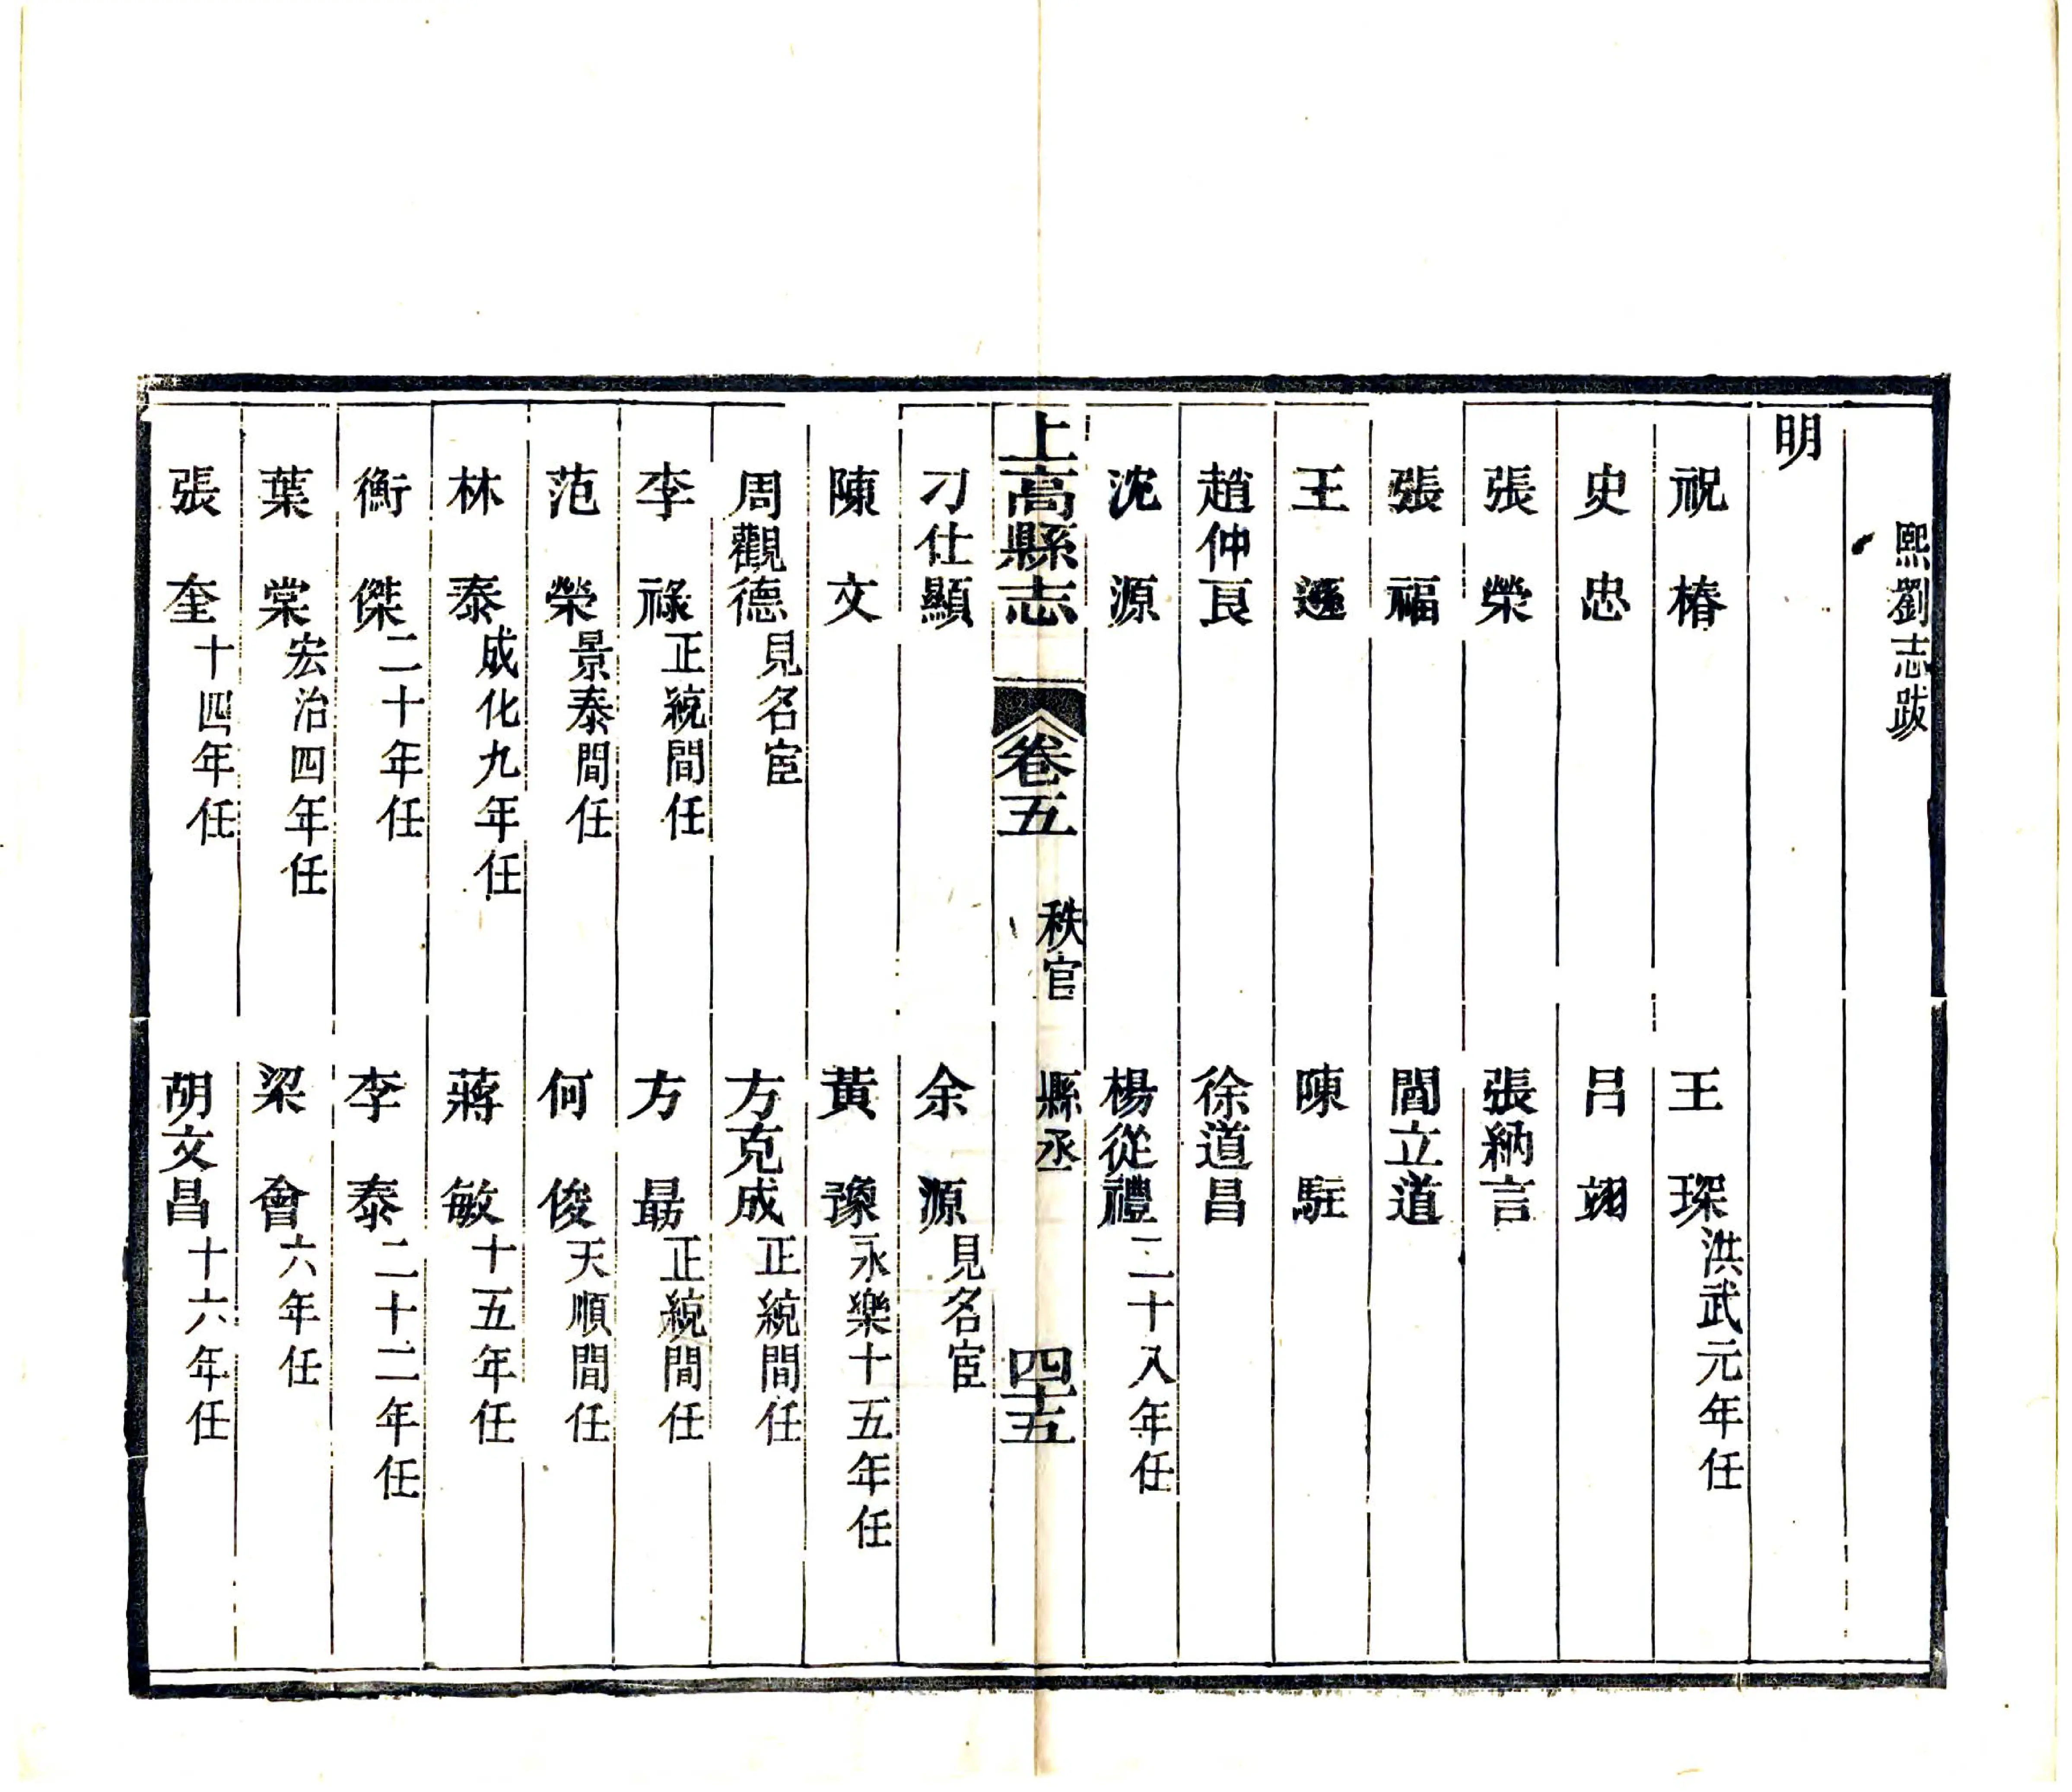 熙劉志跋
明
祝椿　王琛洪武元年任
史忠　呂翊
張榮　張納言
張福　閻立道
王遜　陳駐
趙仲良　徐道昌
沈源　楊從禮二十八年任
上高縣志　卷五　秩官　縣丞　四十五
刁仕顯　余源見名宦
陳文　黃豫永樂十五年任
周觀德見名宦　方克成正統間任
李祿正統間任　方最正統間任
范榮景泰間任　何俊天順間任
林泰成化九年任　蔣敏十五年任
衡傑二十年任　李泰二十二年任
葉棠宏治四年任　梁會六年任
張奎十四年任　胡文昌十六年任